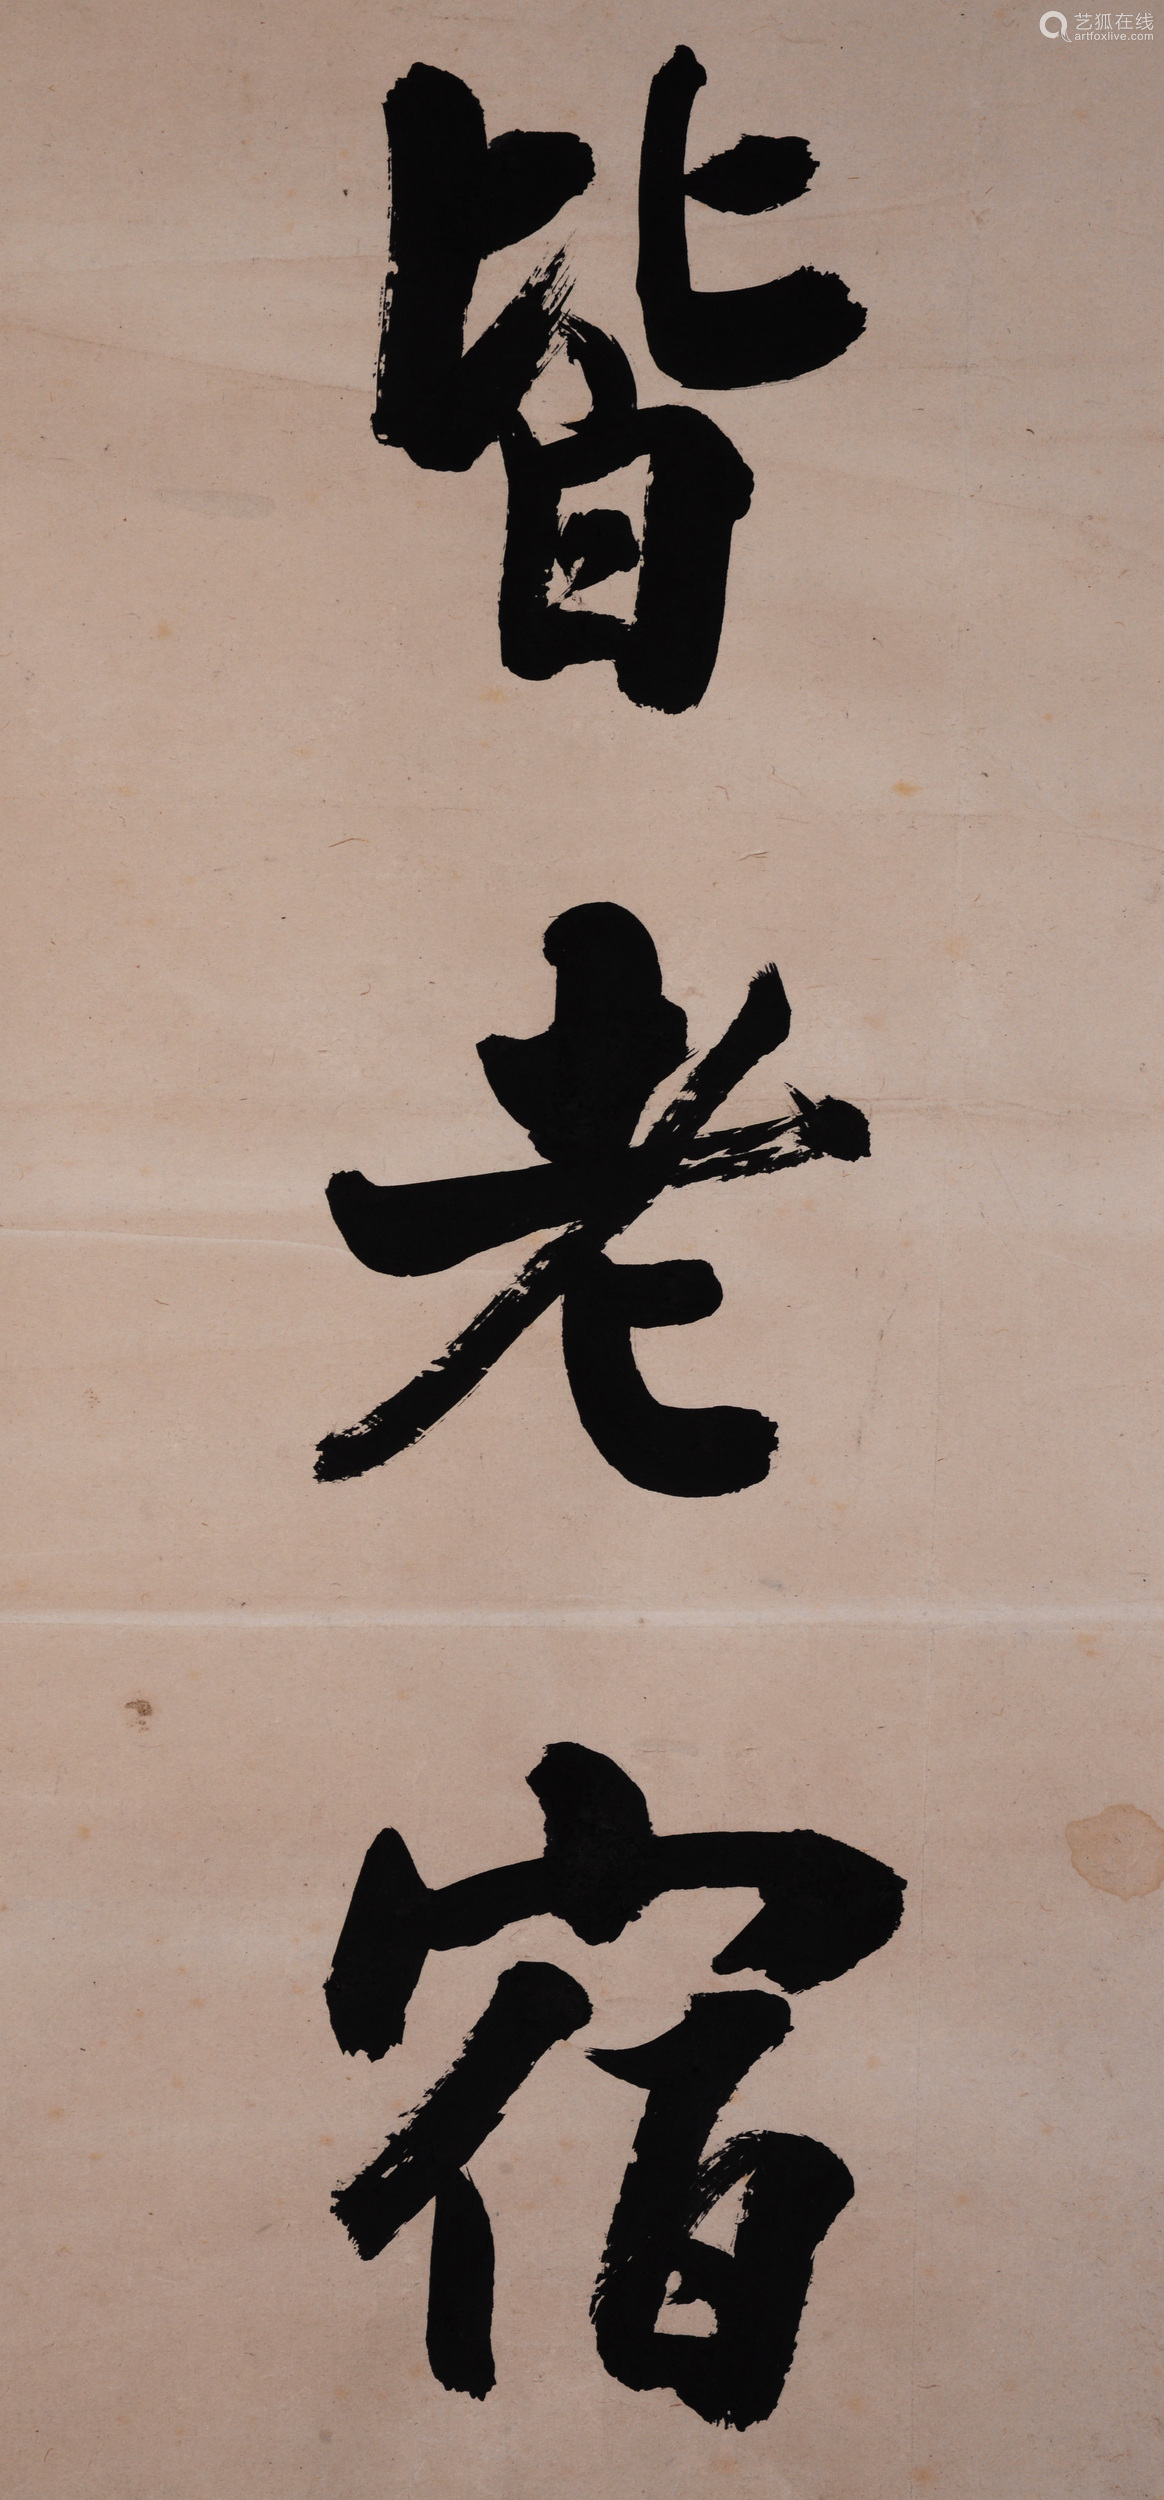 艺狐在线
artfoxlive.com
皆老宿